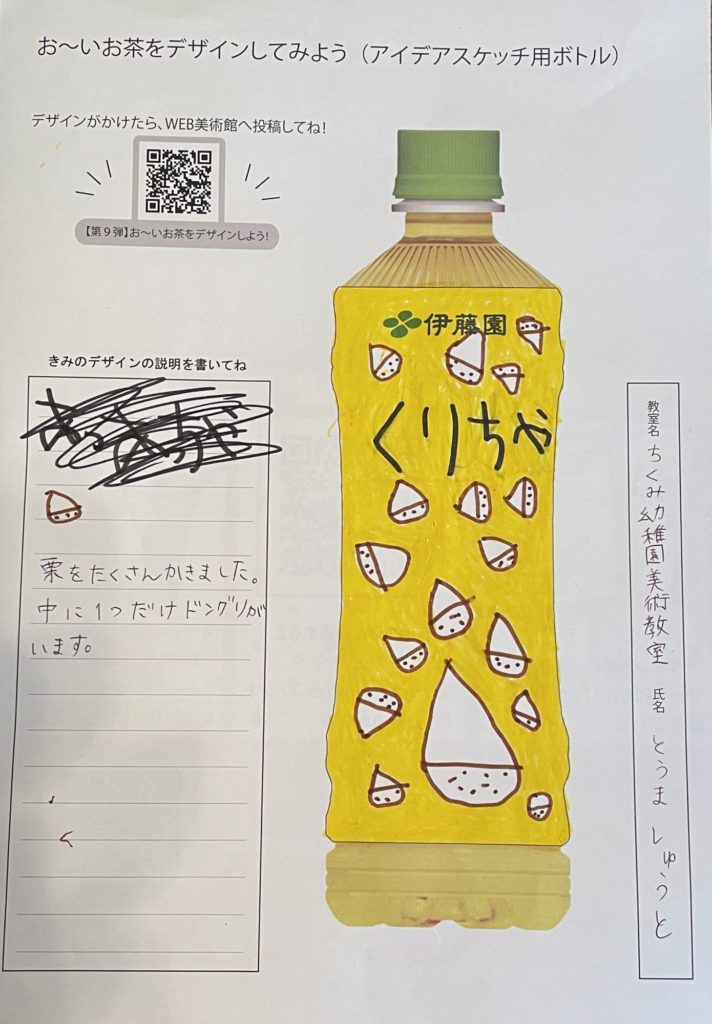 お〜いお茶をデザインしてみよう（アイデアスケッチ用ボトル）
デザインがかけたら、WEB美術館へ投稿してね!
【第９弾】お〜いお茶をデザインしよう!
伊藤園
くりちゃ
きみのデザインの説明を書いてね
栗をたくさんかきました。
中に1つだけドングリが
います。
教室名 ちくみ幼稚園美術教室 氏名 とうま しゅうと